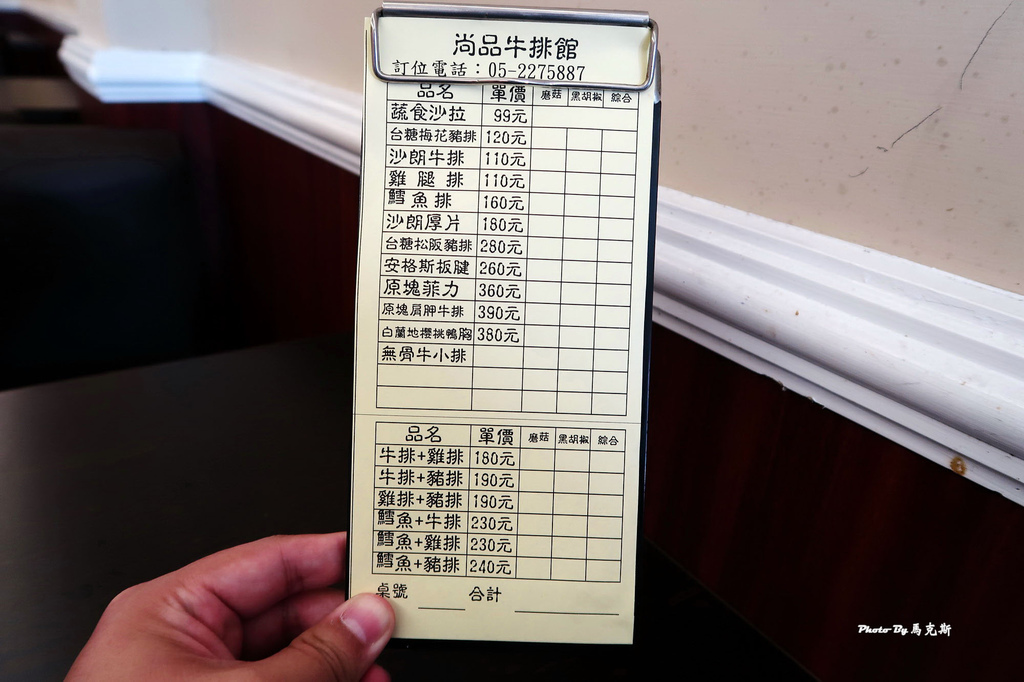 尚品牛排館
訂位電話：05-2275887
品名 單價 磨菇 黑胡椒 綜合
蔬食沙拉 99元
台糖梅花豬排 120元
沙朗牛排 110元
雞腿排 110元
鱈魚排 160元
沙朗厚片 180元
台糖松阪豬排 280元
安格斯板腱 260元
原塊菲力 360元
原塊肩胛牛排 390元
白蘭地櫻桃鴨胸 380元
無骨牛小排
品名 單價 磨菇 黑胡椒 綜合
牛排+雞排 180元
牛排+豬排 190元
雞排+豬排 190元
鱈魚+牛排 230元
鱈魚+雞排 230元
鱈魚+豬排 240元
桌號 合計
Photo By 馬克斯